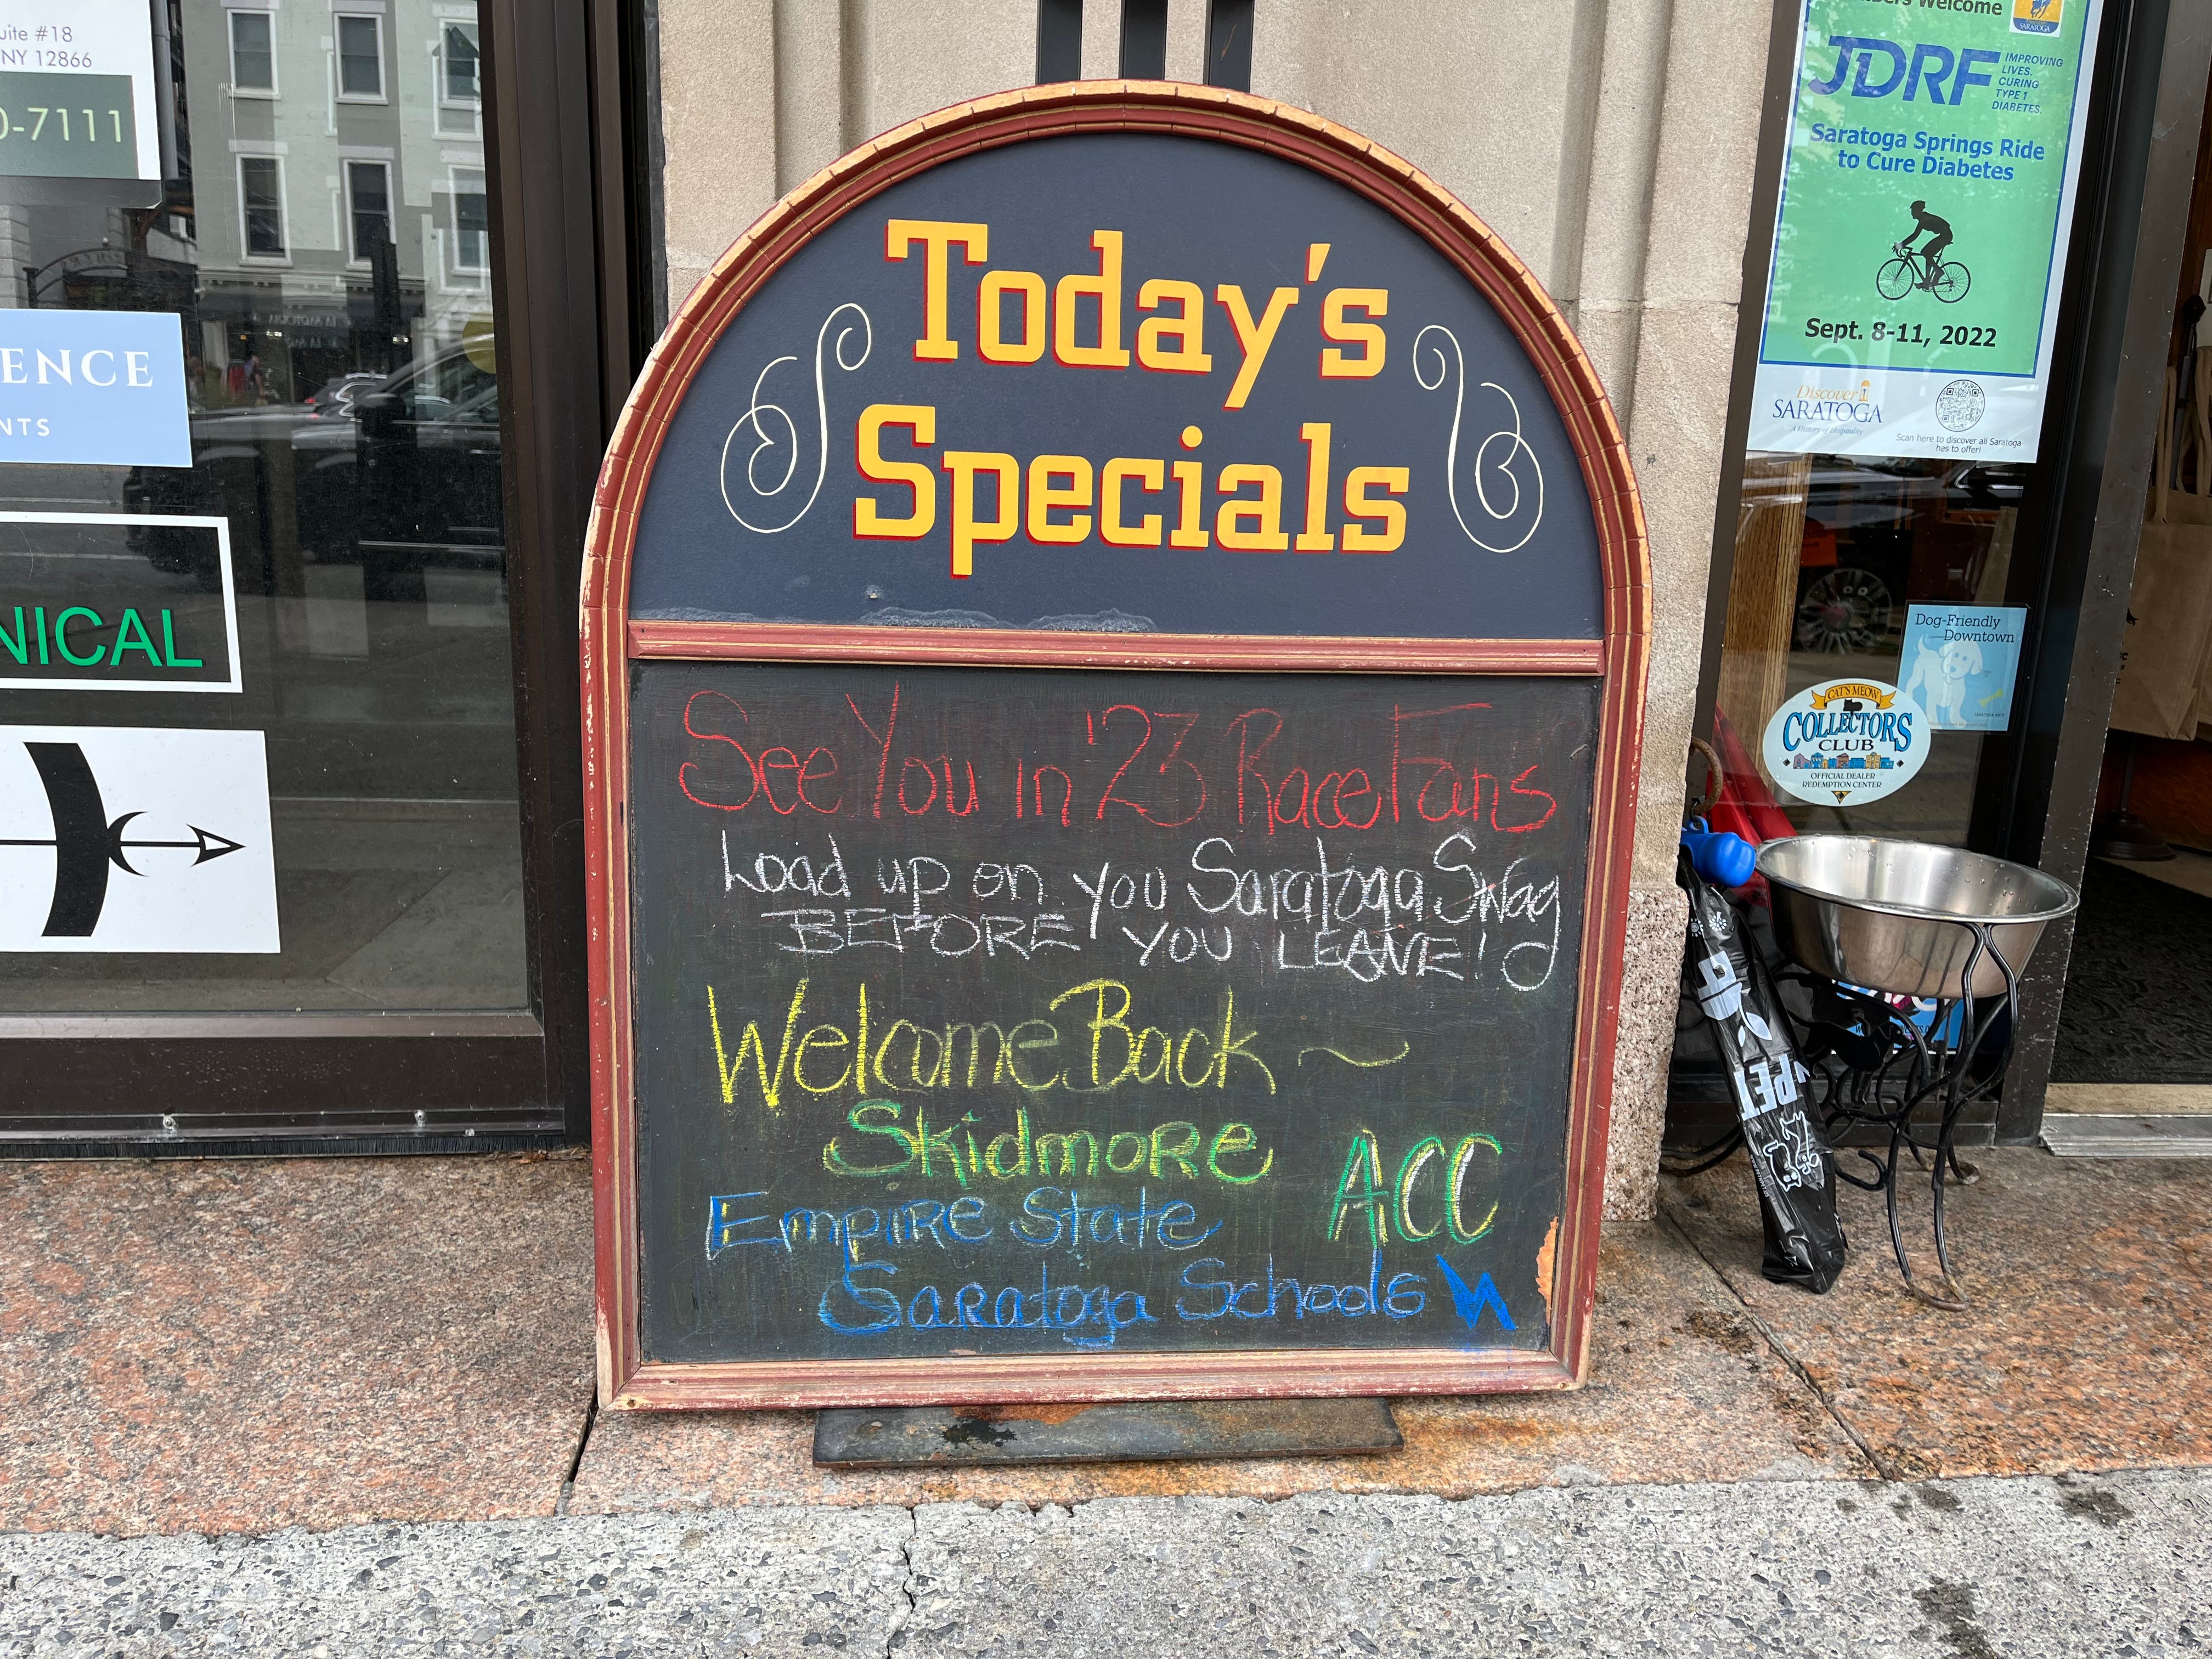 uite #18
NY 12866
0-7111
ENCE
NTS
NICAL
Today's
Specials
See You in '23 Race Fans
Load up on you Saratoga Swag
BEFORE YOU LEAVE!
Welcome Back ~
Skidmore
ACC
Empire State
Saratoga Schools
Welcome
SARATOGA
JDRF
IMPROVING
LIVES.
CURING
TYPE 1
DIABETES.
Saratoga Springs Ride
to Cure Diabetes
Sept. 8-11, 2022
Discover
SARATOGA
A History of Hospitality
Scan here to discover all Saratoga
has to offer!
Dog-Friendly
Downtown
CAT'S MEOW
COLLECTORS
CLUB
OFFICIAL DEALER
REDEMPTION CENTER
PET